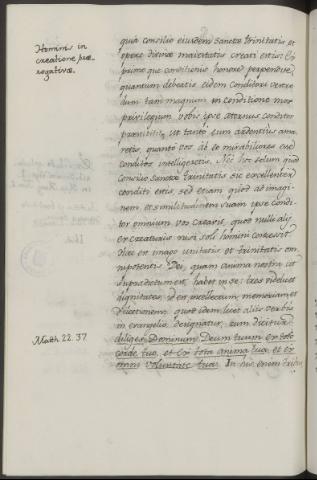 Hominis in
creatione præ
rogativæ.
quia consilio eiusdem sanctæ trinitatis et
opere divinæ maiestatis creati estis: Ex
primo que conditionis honore perpendite,
quantum debeatis eidem conditori vestro
dum tam magnum in conditione mox
privilegium vobis ipse æternus conditor
præstitit, ut tanto eum ardentius ama-
retis, quanto vos ab eo mirabiliores esse
conditos intelligeretis. Nec hoc solum quod
consilio sanctæ trinitatis sic excellenter
conditi estis sed etiam quod ad imagi-
nem et similitudinem suam ipse condi-
tor omnium vos creavit, quod nulli ali-
er creaturis nisi soli homini concessit
unitatis et trinitatis om-
nipotentis Dei, quam anima nostra ut
supra dictum est, habet in se: tres videlicet
dignitates, id est intellectum, memoriam et
voluntatem. quod idem licet aliis verbis
in evangelio designatur, cum dicitur
Matth 22. 37.
diliges Dominum Deum tuum ex toto
corde tuo, et ex tota anima tua et ex
omni voluntate tua. In his enim tribus